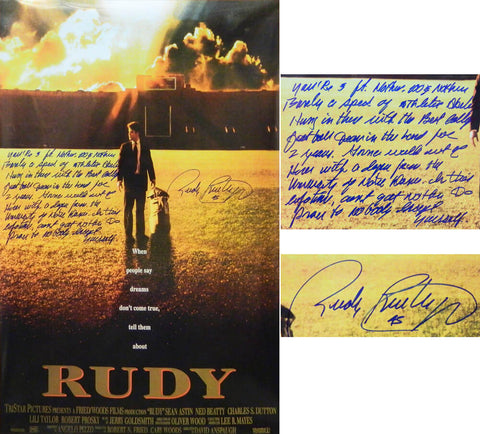 you're 5 ft. Nothin. 100 & Nothin
Barely a speck of athletic
Hung in there with the Best
football team in the land for
2 years. Gonna walk out of
Here with a degree from the
University of Notre Dame. In this
lifetime, don't got nothin to
Prove to nobody except
Yourself
Rudy Ruettiger
45
When
people say
dreams
don't come true,
tell them
about
RUDY
TRISTAR PICTURES PRESENTS A FRIED/WOODS FILMS PRODUCTION "RUDY" SEAN ASTIN NED BEATTY CHARLES S. DUTTON
LILI TAYLOR ROBERT PROSKY JERRY GOLDSMITH OLIVER WOOD LEE R. MAYES
ANGELO PIZZO ROBERT N. FRIED CARY WOODS DAVID ANSPAUGH
you're 5 ft. Nothin. 100 & Nothin
Barely a speck of athletic
Hung in there with the Best
football team in the land for
2 years. Gonna walk out of
Here with a degree from the
University of Notre Dame. In this
lifetime, don't got nothin to
Prove to nobody except
Yourself
Rudy Ruettiger
45